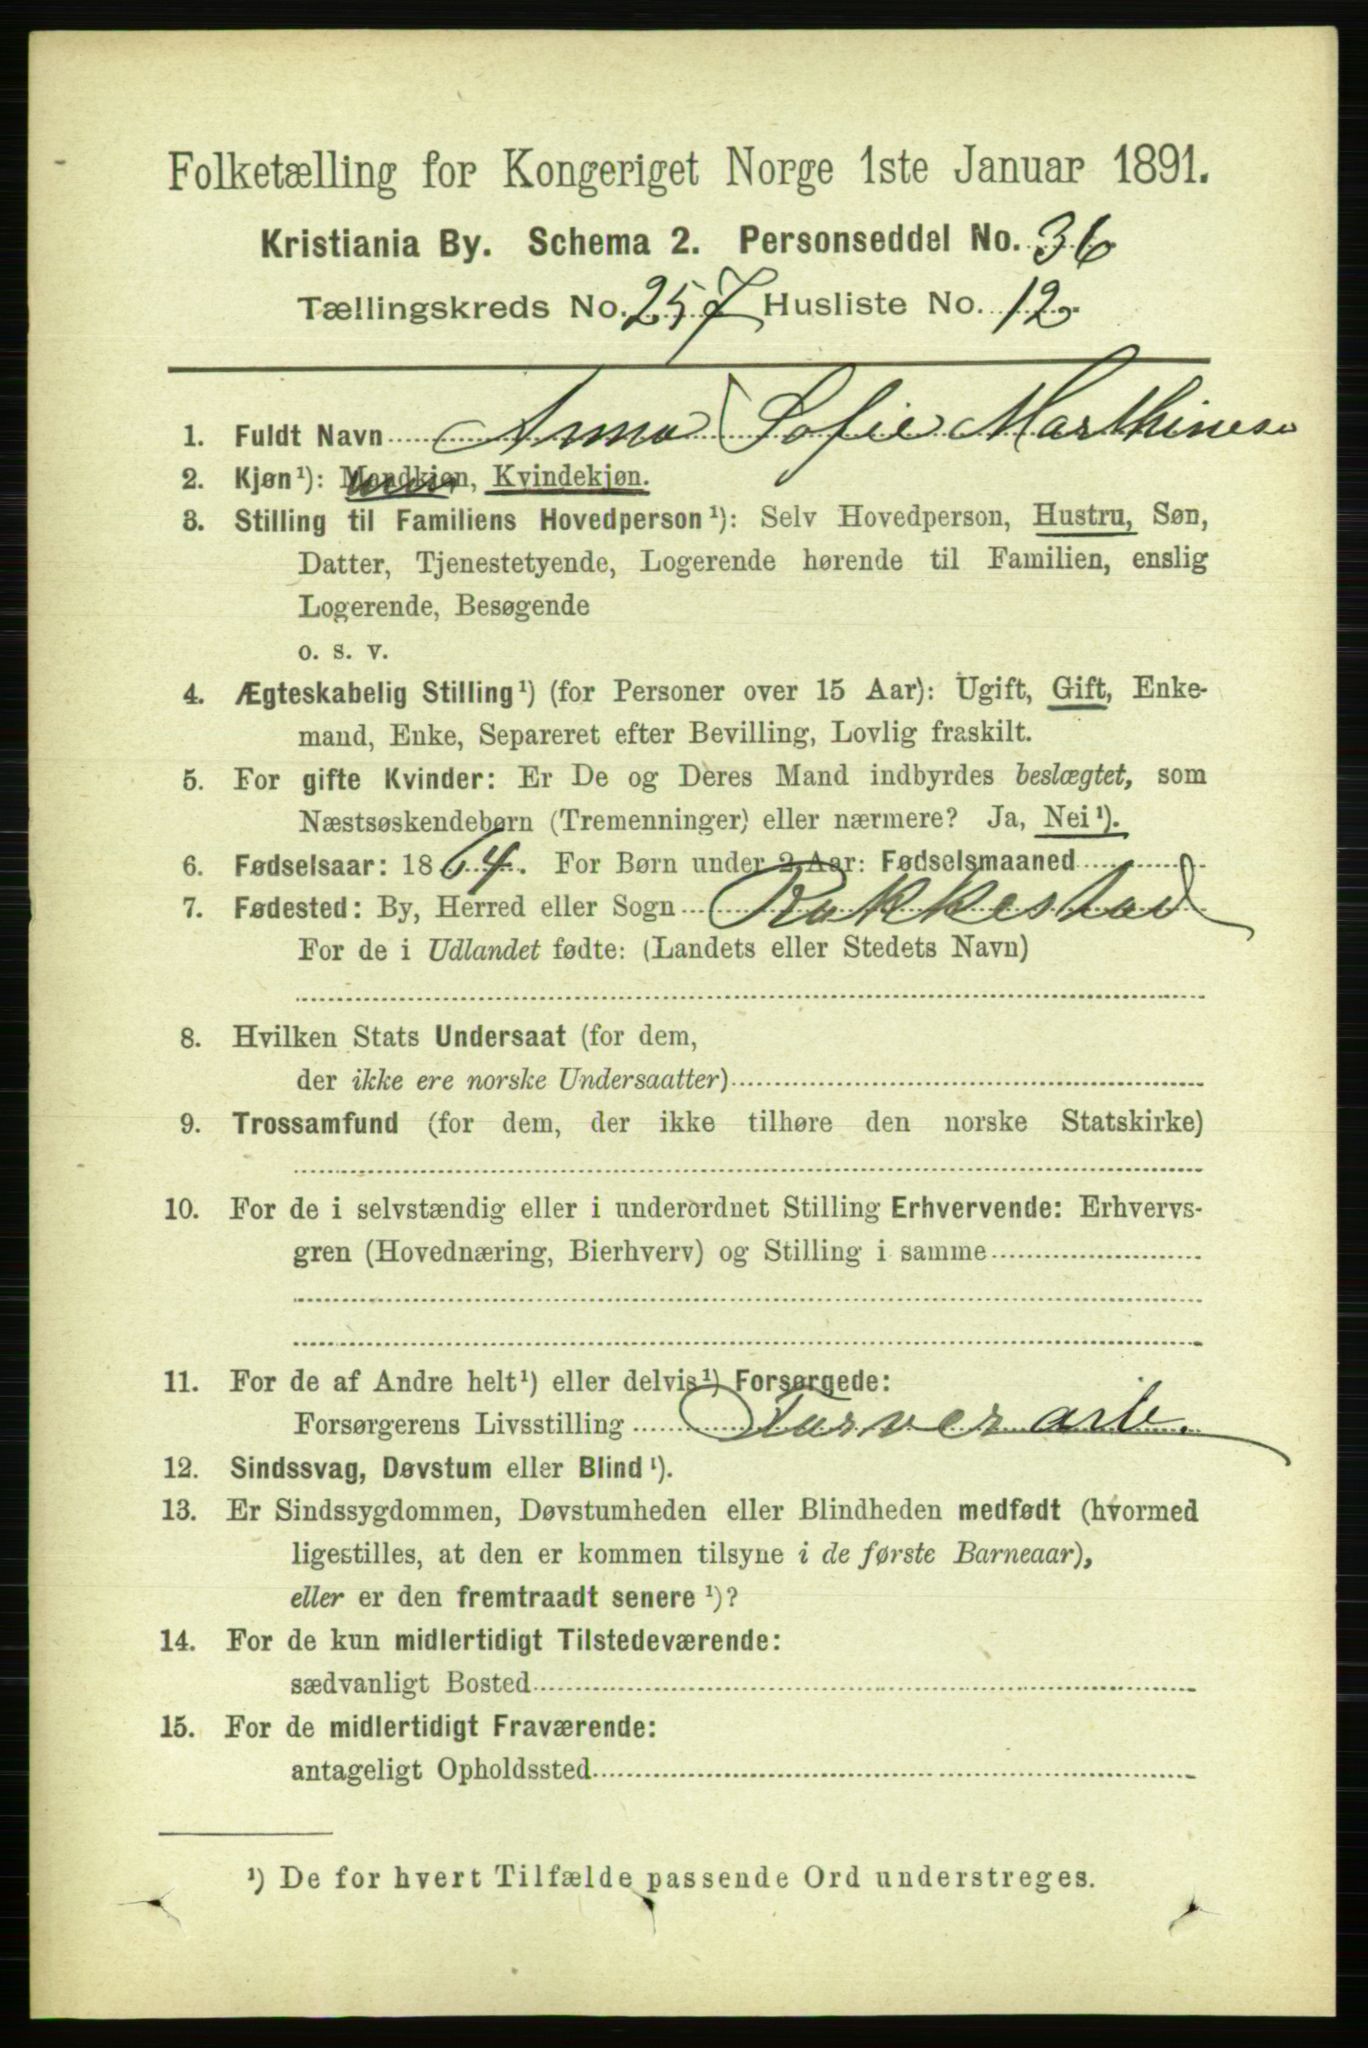 Folketælling for Kongeriget Norge 1ste Januar 1891.
Kristiania By. Schema 2. Personseddel No. 36
Tællingskreds No. 257 Husliste No. 12
1. Fuldt Navn Anna Sofie Marthinesen
2. Kjøn¹): Mandkjøn, Kvindekjøn.
3. Stilling til Familiens Hovedperson¹): Selv Hovedperson, Hustru, Søn,
Datter, Tjenestetyende, Logerende hørende til Familien, enslig
Logerende, Besøgende
o. s. v.
4. Ægteskabelig Stilling¹) (for Personer over 15 Aar): Ugift, Gift, Enke-
mand, Enke, Separeret efter Bevilling, Lovlig fraskilt.
5. For gifte Kvinder: Er De og Deres Mand indbyrdes beslægtet, som
Næstsøskendebørn (Tremenninger) eller nærmere? Ja, Nei¹).
6. Fødselsaar: 1864. For Børn under 2 Aar: Fødselsmaaned
7. Fødested: By, Herred eller Sogn Rakkestad
For de i Udlandet fødte: (Landets eller Stedets Navn)
8. Hvilken Stats Undersaat (for dem,
der ikke ere norske Undersaatter)
9. Trossamfund (for dem, der ikke tilhøre den norske Statskirke)
10. For de i selvstændig eller i underordnet Stilling Erhvervende: Erhvervs-
gren (Hovednæring, Bierhverv) og Stilling i samme
11. For de af Andre helt¹) eller delvis¹) Forsørgede:
Forsørgerens Livsstilling Farver arb.
12. Sindssvag, Døvstum eller Blind¹).
13. Er Sindssygdommen, Døvstumheden eller Blindheden medfødt (hvormed
ligestilles, at den er kommen tilsyne i de første Barneaar),
eller er den fremtraadt senere¹)?
14. For de kun midlertidigt Tilstedeværende:
sædvanligt Bosted
15. For de midlertidigt Fraværende:
antageligt Opholdssted
¹) De for hvert Tilfælde passende Ord understreges.